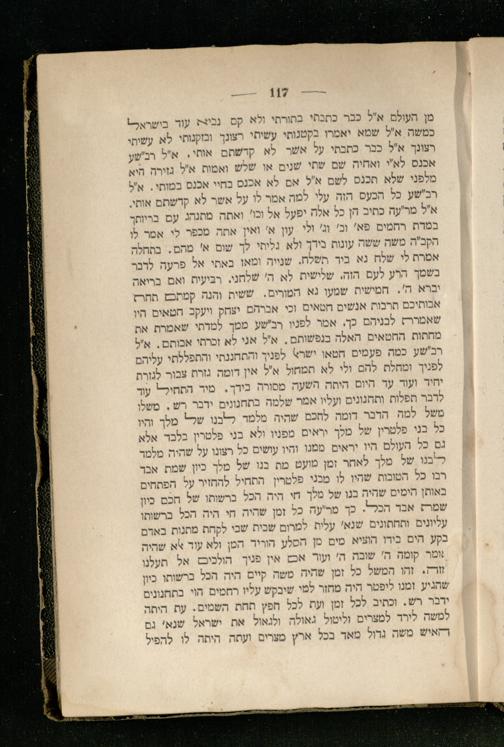 — 117 —
מן העולם א"ל כבר כתבתי בתורתי ולא קם נביא עוד בישראל
כמשה א"ל שמא יאמרו בקטנותי עשיתי רצונך ובזקנותי לא עשיתי
רצונך א"ל כבר כתבתי על אשר לא קדשתם אותי. א"ל רבש"ע
אכנס לא"י ואחיה שם שתי שנים או שלש ואמות א"ל גזירה היא
מלפני שלא תכנס לשם א"ל אם לא אכנס בחיי אכנס במותי. א"ל
רבש"ע כל הכעס הזה עלי למה אמר לו על אשר לא קדשתם אותי.
א"ל מר"עה כתיב הן כל אלה יפעל אל וכו' ואתה מתנהג עם בריותך
במדת רחמים פא' וב' וג' ולי עון א' ואין אתה מכפר לי אמר לו
הקב"ה משה ששה עונות בידך ולא גליתי לך שום א' מהם. בתחלה
אמרת לי שלח נא ביד תשלח. שנייה ומאז באתי אל פרעה לדבר
בשמך הרע לעם הזה. שלישית לא ה' שלחני. רביעית ואם בריאה
יברא ה'. חמישית שמעו נא המורים. ששית והנה קמתם תחת
אבותיכם תרבות אנשים חטאים וכי אברהם יצחק ויעקב חטאים היו
שאמרת לבניהם כך. אמר לפניו רבש"ע ממך למדתי שאמרת את
מחתות החטאים האלה בנפשותם. א"ל אני לא זכרתי אבותם. א"ל
רבש"ע כמה פעמים חטאו ישראל לפניך והתחננתי והתפללתי עליהם
לפניך ומחלת להם ולי לא תמחול א"ל אין דומה גזרת צבור לגזרת
יחיד ועוד עד היום היתה השעה מסורה בידך. מיד התחיל עוד
לדבר תפלות ותחנונים ועליו אמר שלמה בתחנונים ידבר רש. משלו
משל למה הדבר דומה לחכם שהיה מלמד לבנו של מלך והיו
כל בני פלטרין של מלך יראים מפניו ולא בני פלטרין בלבד אלא
גם כל העולם היו יראים ממנו והיו עושים כל רצונו על שהיה מלמד
לבנו של מלך לאחר זמן מועט מת בנו של מלך כיון שמת אבד
רבו כל הטובות שהיו לו מבני פלטרין התחיל להחזיר על הפתחים
באותן הימים שהיה בנו של מלך חי היה הכל ברשותו של חכם כיון
שמת אבד הכל. כך מר"עה כל זמן שהיה חי היה הכל ברשותו
עליונים ותחתונים שנא' עלית למרום שבית שבי לקחת מתנות באדם
בקע הים בידו הוציא מים מן הסלע הוריד המן ולא עוד אלא שהיה
אומר קומה ה' שובה ה' ועוד אם אין פניך הולכים אל תעלנו
מזה. זהו המשל כל זמן שהיה משה קיים היה הכל ברשותו כיון
שהגיע זמנו ליפטר היה מחזר למי שיבקש עליו רחמים הוי בתחנונים
ידבר רש. וכתיב לכל זמן ועת לכל חפץ תחת השמים. עת היתה
למשה לירד למצרים וליטול גאולה ולגאול את ישראל שנא' גם
האיש משה גדול מאד בכל ארץ מצרים ועתה היתה לו להפיל